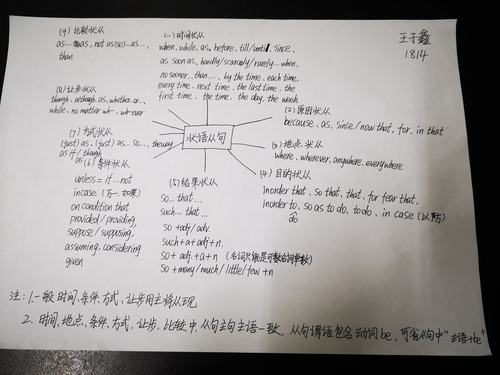 王子鑫
1814
状语从句
(一)时间状从
when, while, as, before, till/until, since,
as soon as, hardly/scarcely/rarely...when,
no sooner...than..., by the time, each time,
every time, next time, the last time, the
first time, the time, the day, the week
(2)原因状从
because, as, since/now that, for, in that
(3)地点状从
where, wherever, anywhere, everywhere
(4)目的状从
in order that, so that, that, for fear that,
in order to, so as to do, to do, in case (以防)
do
(5)结果状从
so...that...
such...that...
so +adj/adv.
such+a+adj+n.
so+adj.+a+n (名词只能是可数名词单数)
so+many/much/little/few+n
(6)条件状从
unless = if...not
incase (万一,如果)
on condition that
provided/providing,
suppose/supposing,
assuming, considering
given
(7)方式状从
(just) as, (just) as...so..., the way
as if/though
(8)让步状从
though, although, as, whether...or...,
while, no matter wh-, wh-ever
(9)比较状从
as...as, not as(so)...as...,
than
注:1.一般时间、条件、方式、让步用主将从现
2.时间、地点、条件、方式、让步、比较中,从句主句主语一致,从句谓语包含动词be,可省从句中"主语+be"